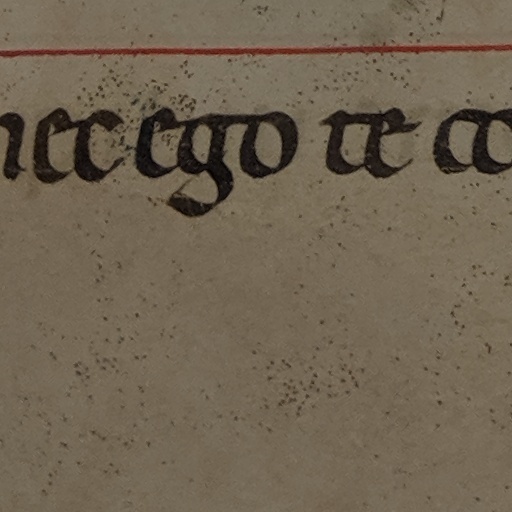 nec ego te co